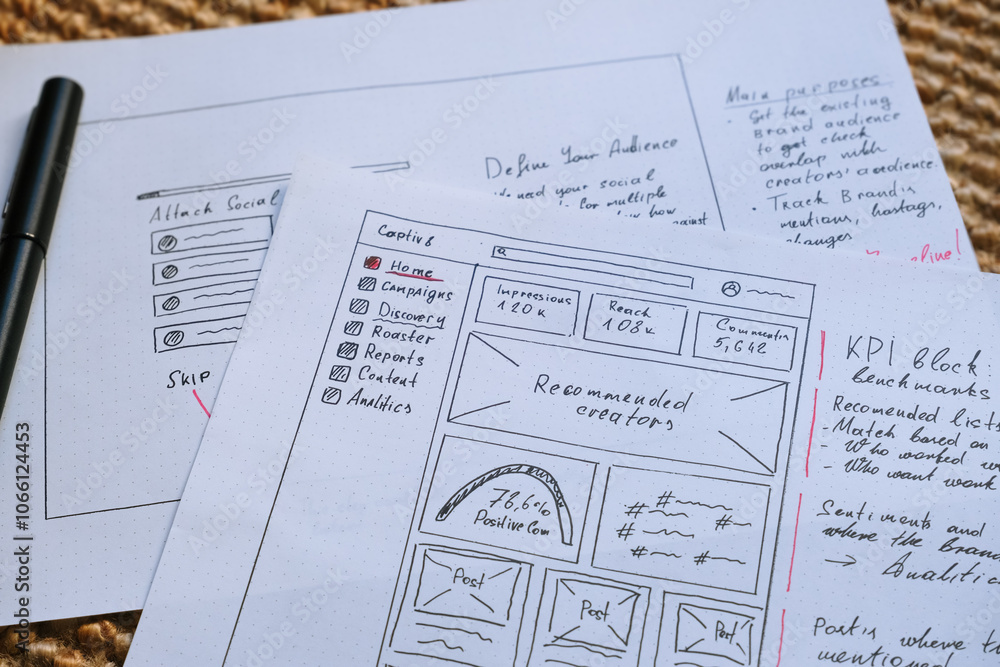 Main purposes
• Get the existing
Brand audience
to get check
overlap with
creators' audience.
• Track Brand's
mentions, hastags,
changes
Define Your Audience
need your social
for multiple
how
against
Attach Social
SKIP
Captiv8
Home
Campaigns
Discovery
Roaster
Reports
Content
Analitics
Impressions
120K
Reach
108K
5,642
Recommended
creators
78,6%
Positive Com
# # # # # #
Post
Post
Post
KPI block:
benchmarks
Recomended lists
- Match based on
- Who worked
- Who want work
Sentiments and
where the Brand
→ Analitic
Posts where
mentione
Adobe Stock | #1066124453